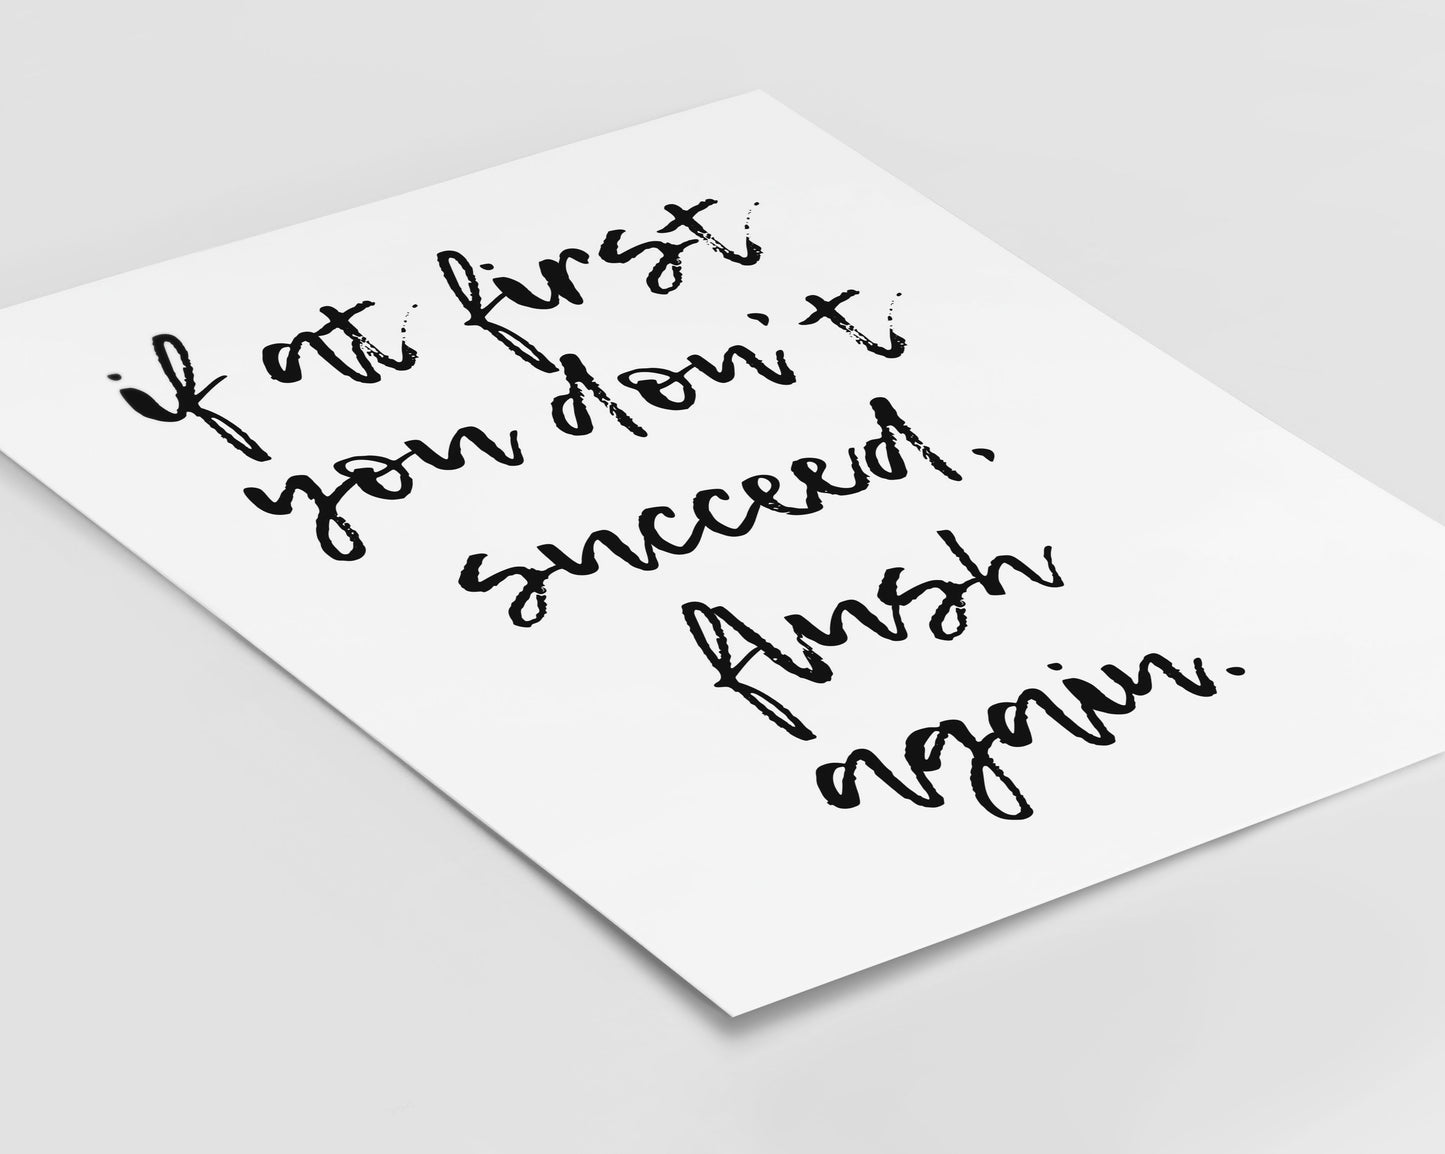 if at first
you don't
succeed.
flush
again.